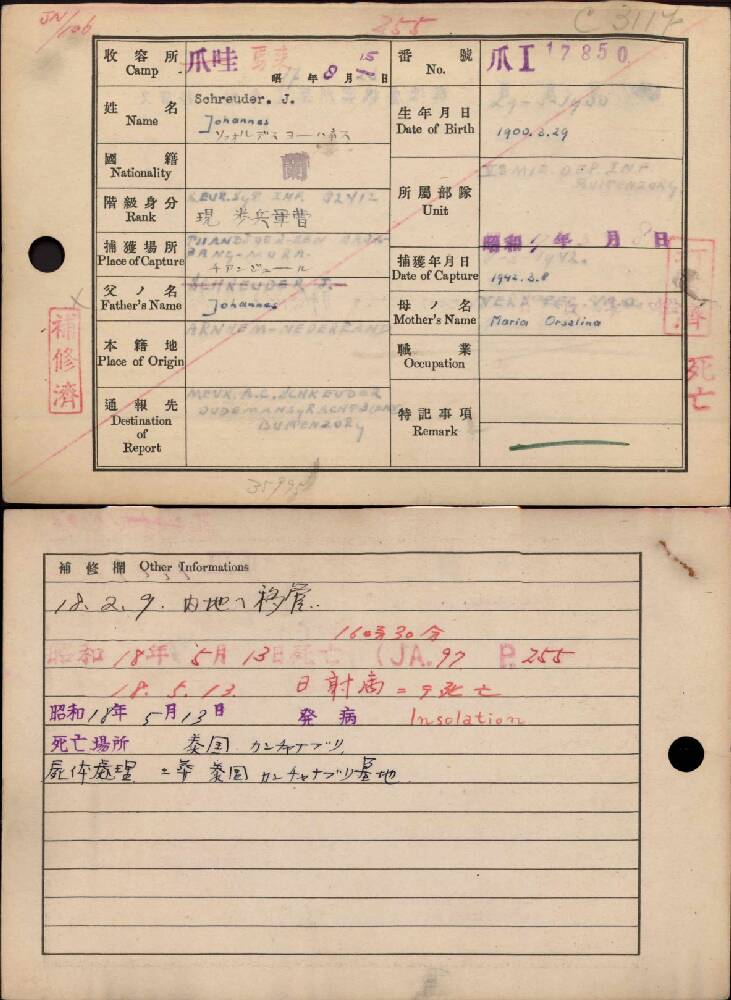 JN/106
255
C 3117
收容所 Camp
爪哇
昭 年 8 月 15 日
番號 No.
爪I 17850
姓名 Name
Schreuder. J.
Johannes
生年月日 Date of Birth
1900.3.29
國籍 Nationality
蘭
階級身分 Rank
現 歩兵軍曹
所屬部隊 Unit
BUITENZORG
捕獲場所 Place of Capture
チアンジュール
捕獲年月日 Date of Capture
昭和 年 月 8 日
1942.3.8
父ノ名 Father's Name
SCHREUDER J.
Johannes
母ノ名 Mother's Name
Maria Orsalina
本籍地 Place of Origin
ARNHEM-NEDERLAND
職業 Occupation
通報先 Destination of Report
MEVR. A.C. SCHREUDER
BUITENZORG
特記事項 Remark
補修濟
濟
死亡
35995
補修欄 Other Informations
18. 2. 9. 内地へ移管.
16時30分
昭和18年 5月 13日死亡 (JA. 97 P. 255
18. 5. 13. 日射病ニテ死亡
昭和18年 5月13日 発病 Insolation
死亡場所 泰国 カンチャナブリ
屍体處理 土葬 泰国 カンチャナブリ墓地